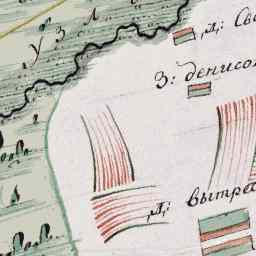 У З Л
Д: Св
З: денисо
Д: вытре